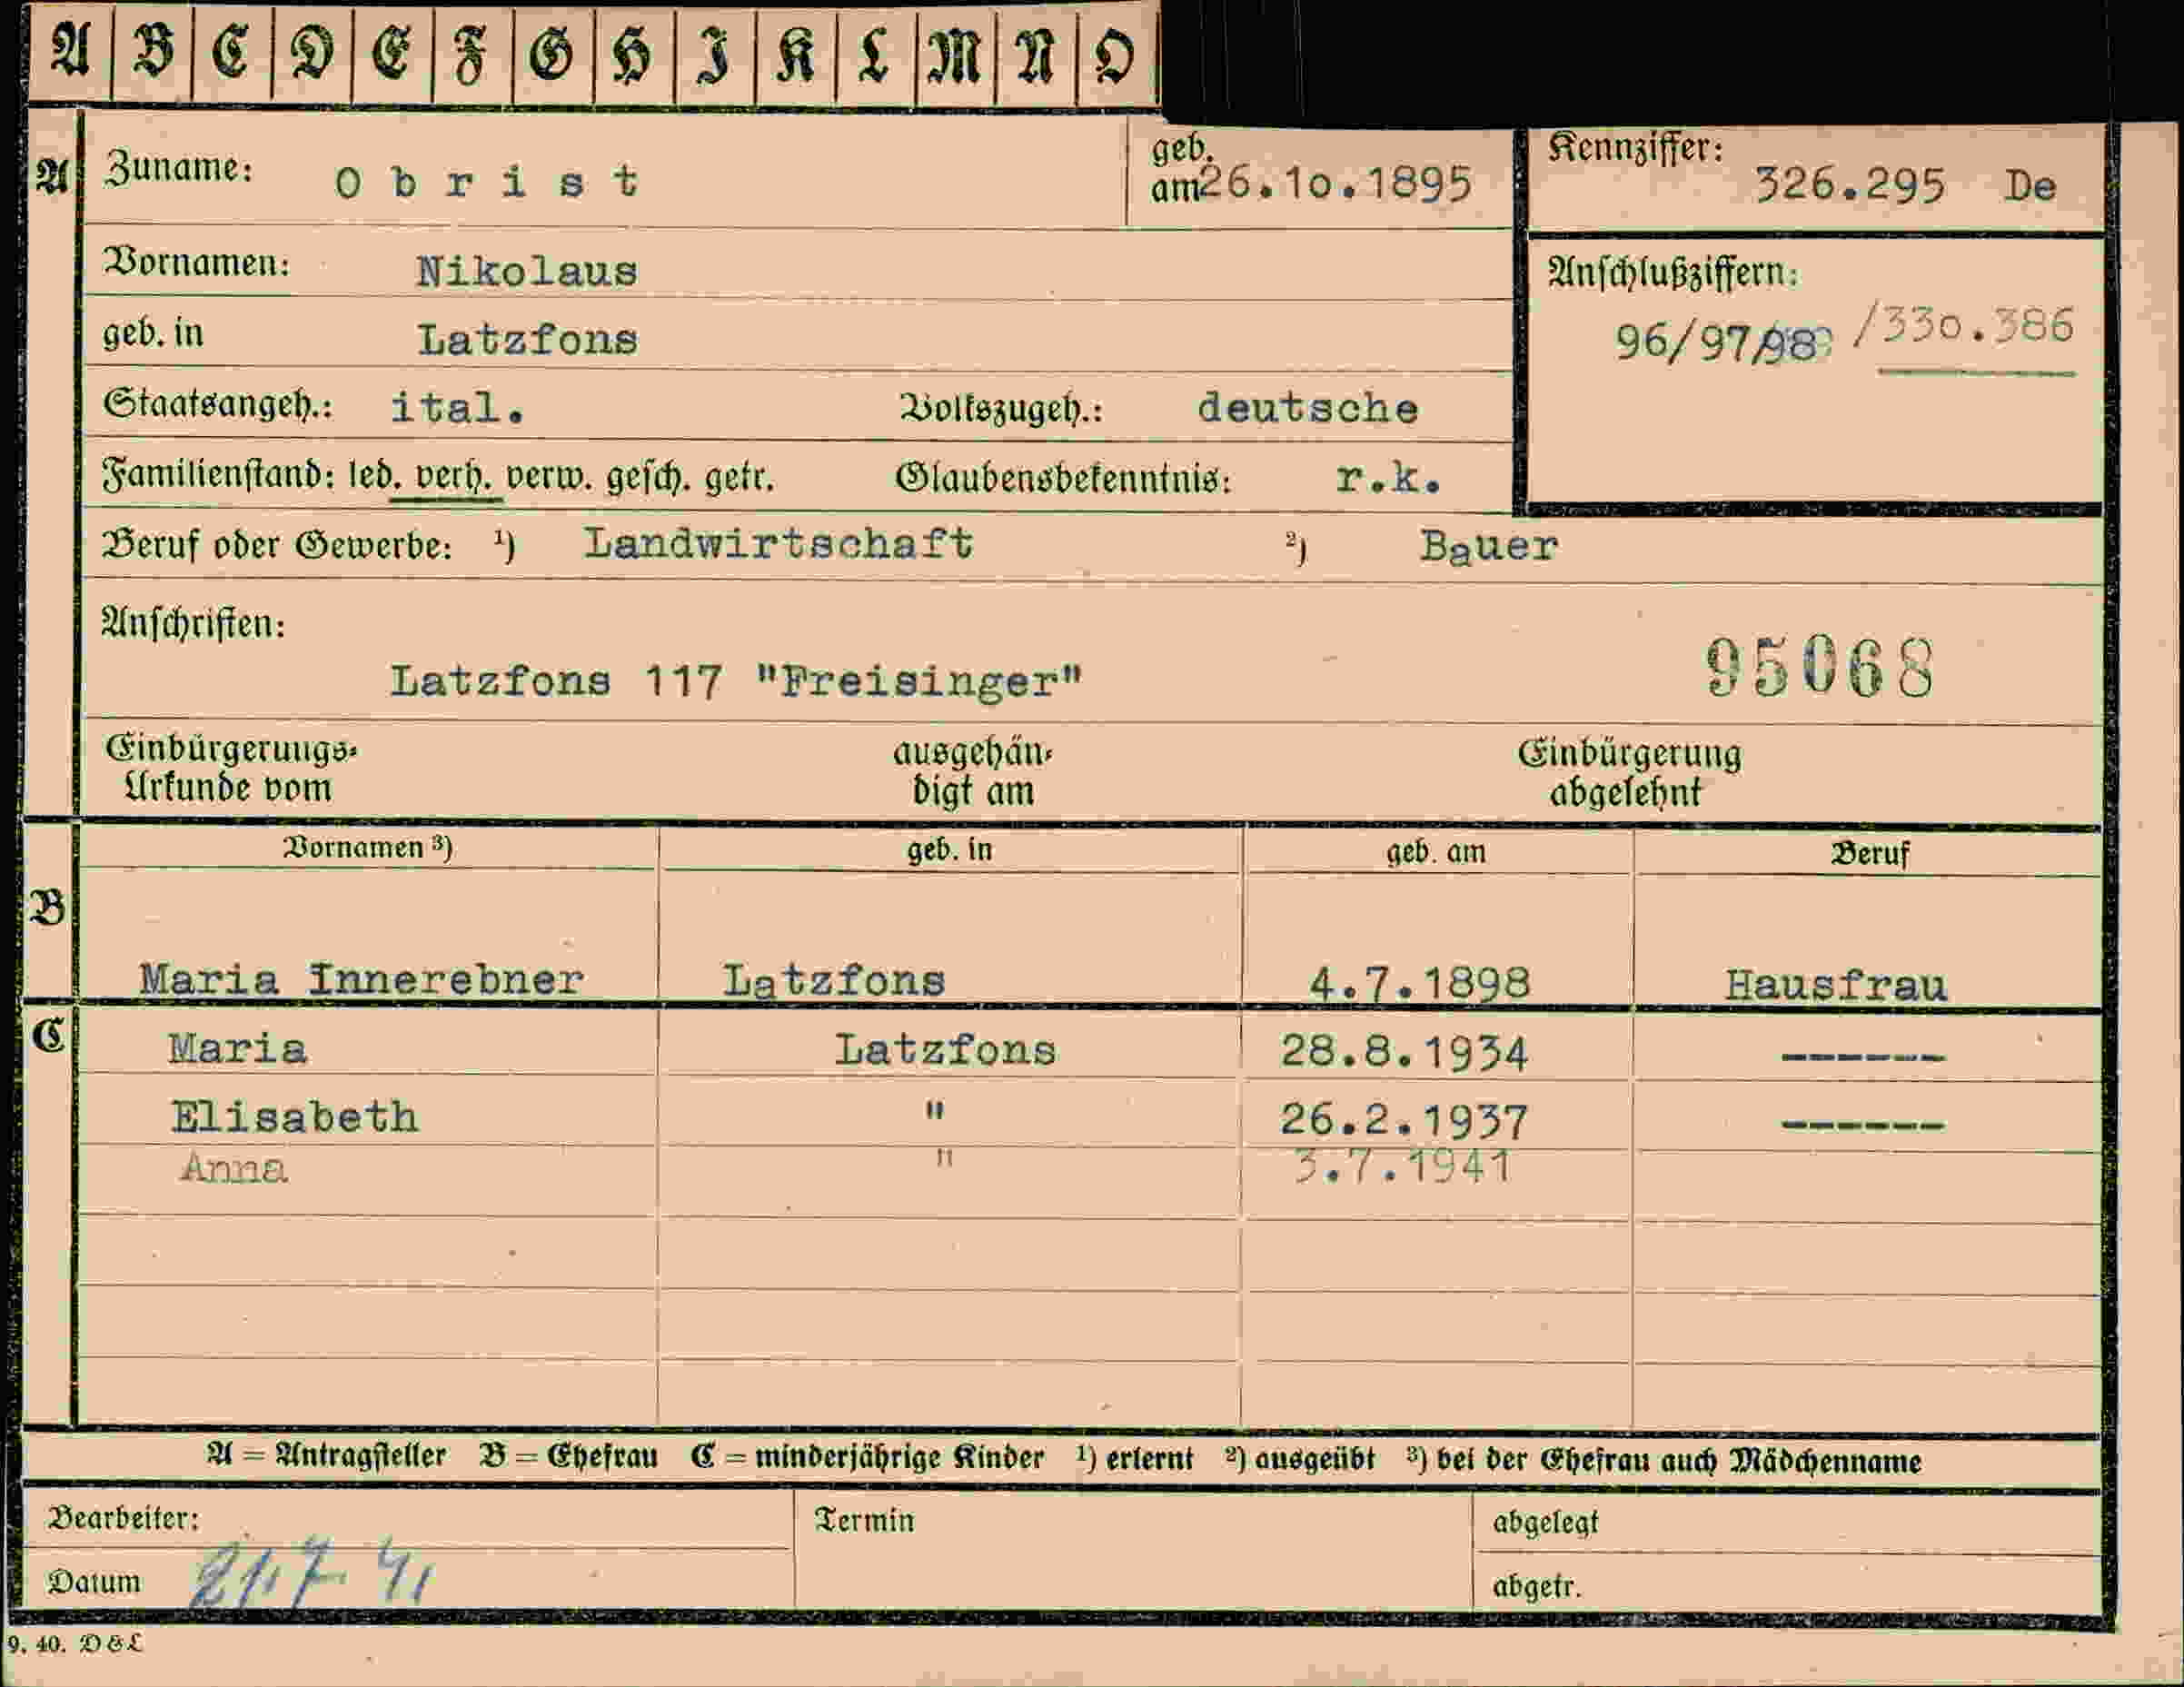 A B C D E F G H I K L M N O
A
Zuname: Obrist geb. am 26.10.1895 Kennziffer: 326.295 De
Vornamen: Nikolaus
Anschlußziffern:
96/97/98 /330.386
geb. in Latzfons
Staatsangeh.: ital. Volkszugeh.: deutsche
Familienstand: led. verh. verw. gesch. getr. Glaubensbekenntnis: r.k.
Beruf oder Gewerbe: ¹) Landwirtschaft ²) Bauer
Anschriften:
Latzfons 117 "Freisinger" 95068
Einbürgerungs- ausgehän- Einbürgerung
Urkunde vom digt am abgelehnt
Vornamen ³) geb. in geb. am Beruf
B
Maria Innerebner Latzfons 4.7.1898 Hausfrau
C Maria Latzfons 28.8.1934 ------
Elisabeth " 26.2.1937 ------
Anna " 3.7.1941
A = Antragsteller B = Ehefrau C = minderjährige Kinder ¹) erlernt ²) ausgeübt ³) bei der Ehefrau auch Mädchenname
Bearbeiter: Termin abgelegt
Datum 21.7. 41 abgetr.
9. 40. D&L